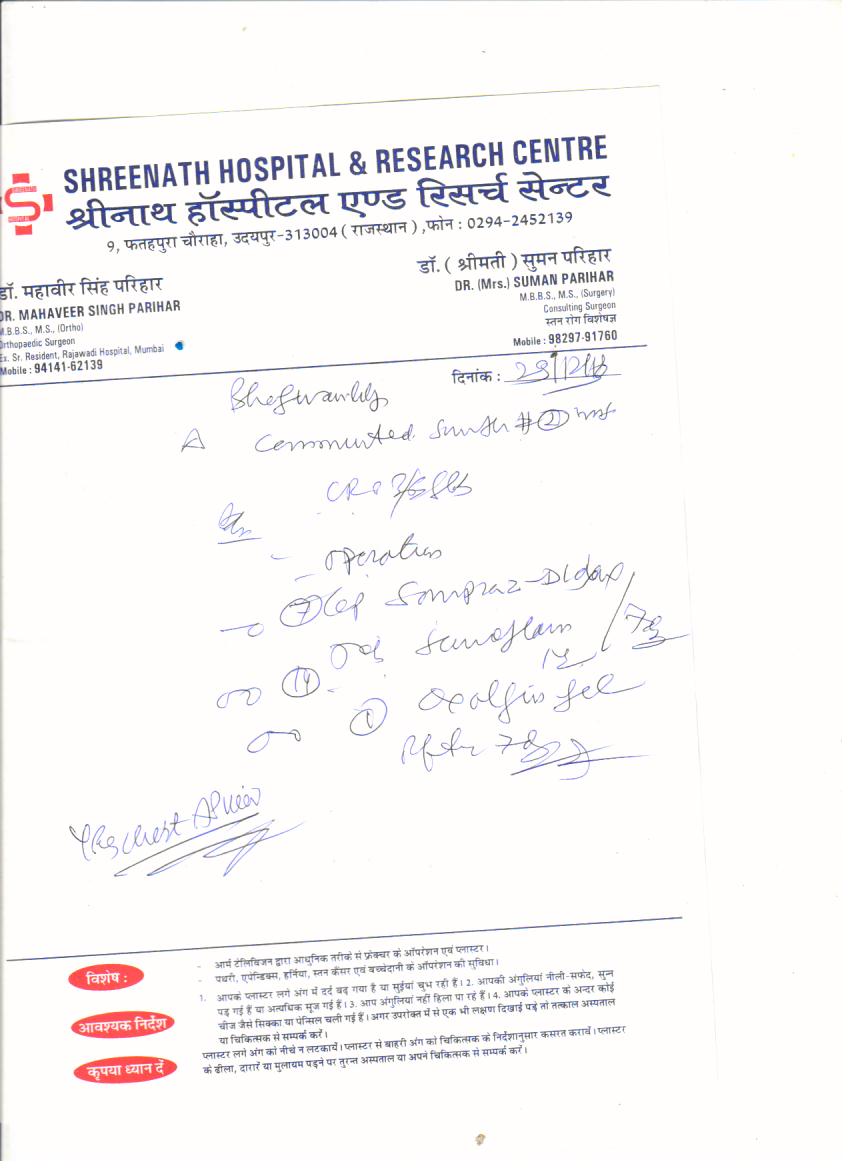 SHREENATH HOSPITAL & RESEARCH CENTRE
श्रीनाथ हॉस्पीटल एण्ड रिसर्च सेन्टर
9, फतहपुरा चौराहा, उदयपुर-313004 ( राजस्थान ) ,फोन : 0294-2452139
डॉ. महावीर सिंह परिहार
DR. MAHAVEER SINGH PARIHAR
M.B.B.S., M.S., (Ortho)
Orthopaedic Surgeon
Ex. Sr. Resident, Rajawadi Hospital, Mumbai
Mobile : 94141-62139
डॉ. ( श्रीमती ) सुमन परिहार
DR. (Mrs.) SUMAN PARIHAR
M.B.B.S., M.S., (Surgery)
Consulting Surgeon
स्तन रोग विशेषज्ञ
Mobile : 98297-91760
दिनांक :
operation
7 Cap Sompraz-D
14
1 Oxalgin gel
After 7
X Ray chest AP View
विशेष :
- आर्म टेलिविजन द्वारा आधुनिक तरीके से फ्रेक्चर के ऑपरेशन एवं प्लास्टर।
- पथरी, एपेन्डिक्स, हर्निया, स्तन कैंसर एवं बच्चेदानी के ऑपरेशन की सुविधा।
आवश्यक निर्देश
1. आपके प्लास्टर लगे अंग में दर्द बढ़ गया है या सुईयां चुभ रही हैं। 2. आपकी अंगुलियां नीली-सफेद, सुन्न
पड़ गई हैं या अत्यधिक सूज गई हैं। 3. आप अंगुलियां नहीं हिला पा रहे हैं। 4. आपके प्लास्टर के अन्दर कोई
चीज जैसे सिक्का या पेन्सिल चली गई हैं। अगर उपरोक्त में से एक भी लक्षण दिखाई पड़े तो तत्काल अस्पताल
या चिकित्सक से सम्पर्क करें।
कृपया ध्यान दें
प्लास्टर लगे अंग को नीचे न लटकायें। प्लास्टर से बाहरी अंग को चिकित्सक के निर्देशानुसार कसरत करावें। प्लास्टर
के ढीला, दारारें या मुलायम पड़ने पर तुरन्त अस्पताल या अपने चिकित्सक से सम्पर्क करें।